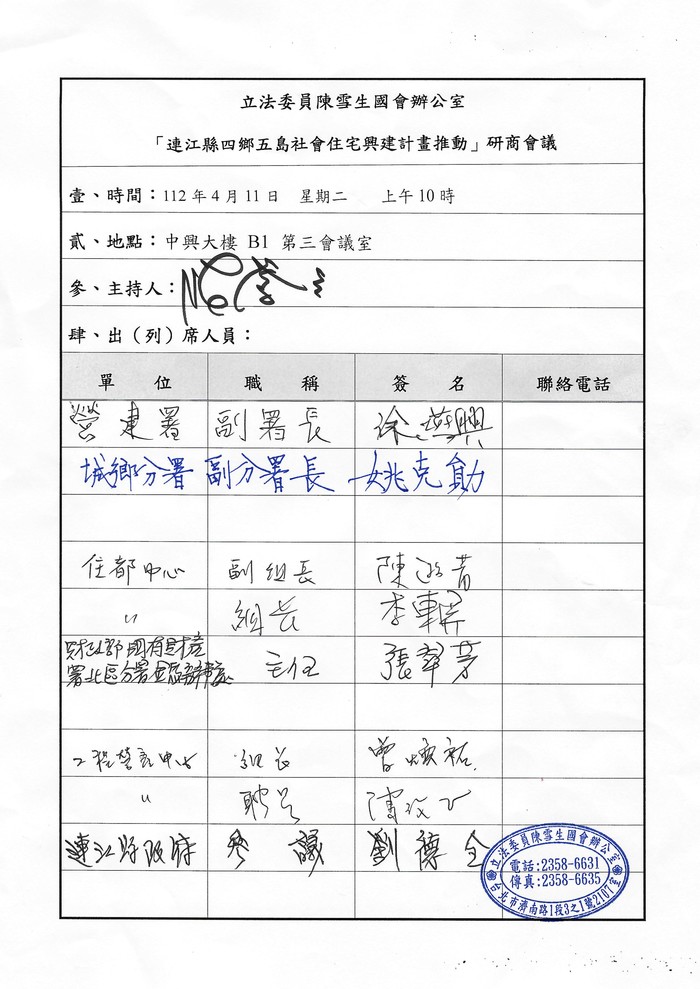 立法委員陳雪生國會辦公室
「連江縣四鄉五島社會住宅興建計畫推動」研商會議
壹、時間：112年4月11日 星期二 上午10時
貳、地點：中興大樓 B1 第三會議室
參、主持人：
肆、出（列）席人員：
單位 職稱 簽名 聯絡電話
營建署 副署長 徐燕興
城鄉分署 副分署長 姚克勛
住都中心 副組長 陳
〃 組長 李
財政部國有財產 主任 張翠芳
署北區分署
工程營建中心 組長 曾煥祐
〃 聘員 陳
連江縣政府 參議 劉德全
立法委員陳雪生國會辦公室
電話：2358-6631
傳真：2358-6635
台北市濟南路1段3之1號2107室